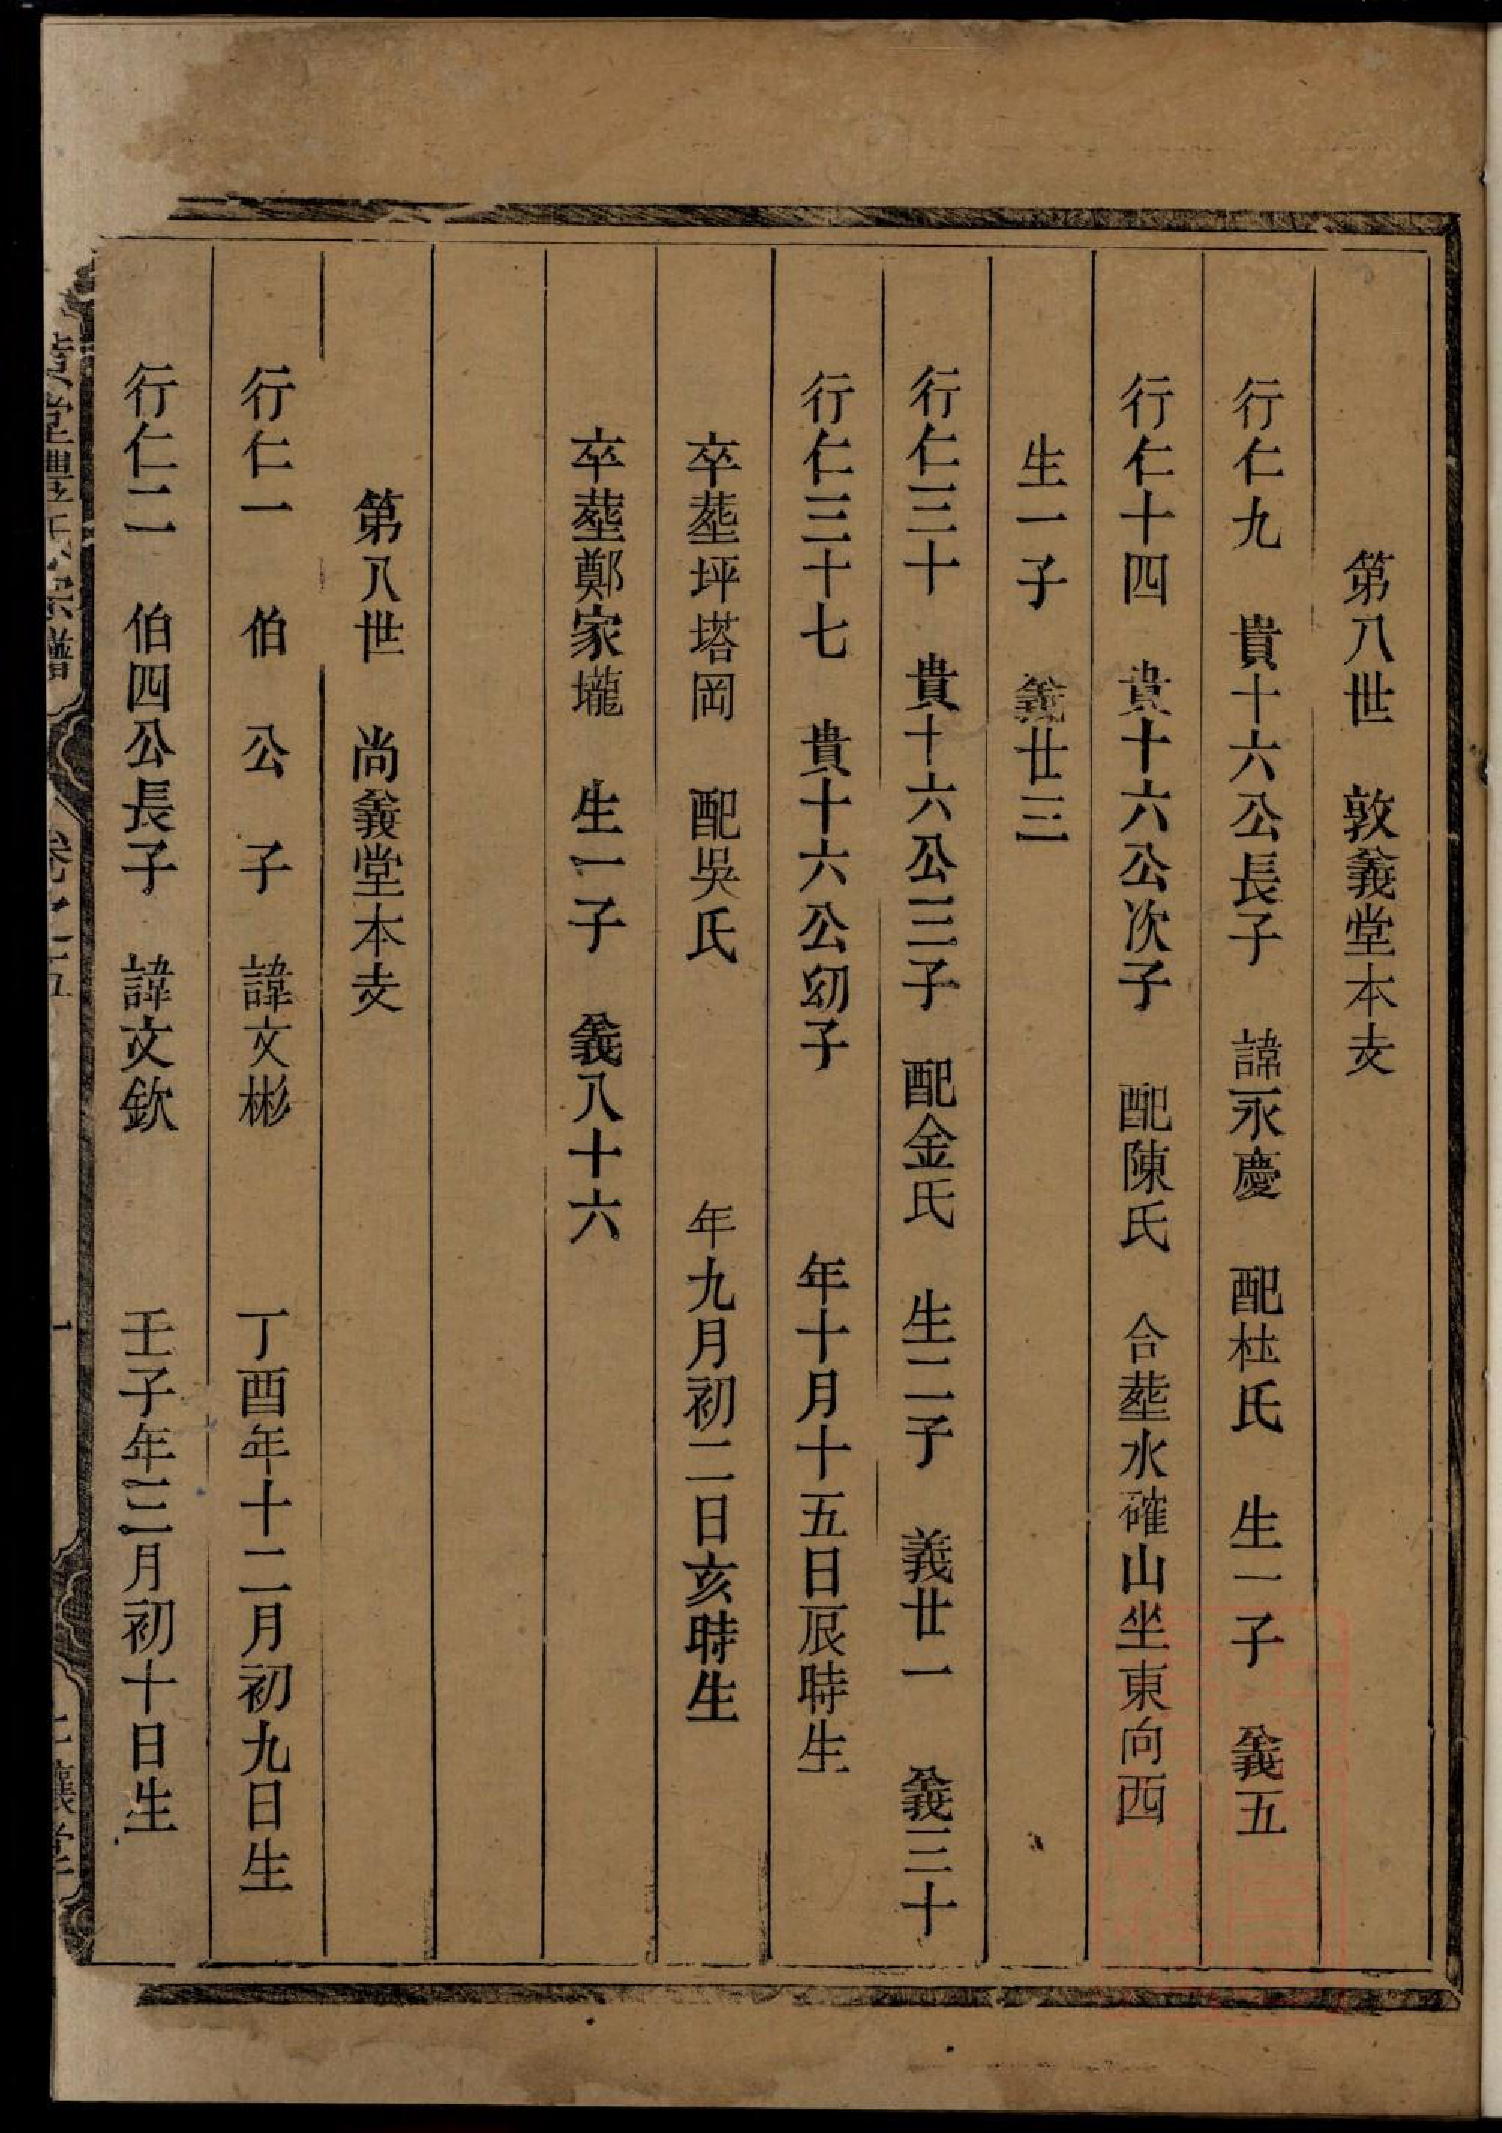 第八世　敦義堂本支
行仁九　貴十六公長子　諱永慶　配杜氏　生一子　義五
行仁十四　貴十六公次子　配陳氏　合塟水確山坐東向西
生一子　義廿三
行仁三十　貴十六公三子　配金氏　生二子　義廿一　義三十
行仁三十七　貴十六公幼子　年十月十五日辰時生
卒塟坪塔岡　配吳氏　年九月初二日亥時生
卒塟鄭家壠　生一子　義八十六
第八世　尚義堂本支
行仁一　伯公子　諱文彬　丁酉年十二月初九日生
行仁二　伯四公長子　諱文欽　壬子年三月初十日生
黃堂豊氏宗譜　卷之五　一　堂